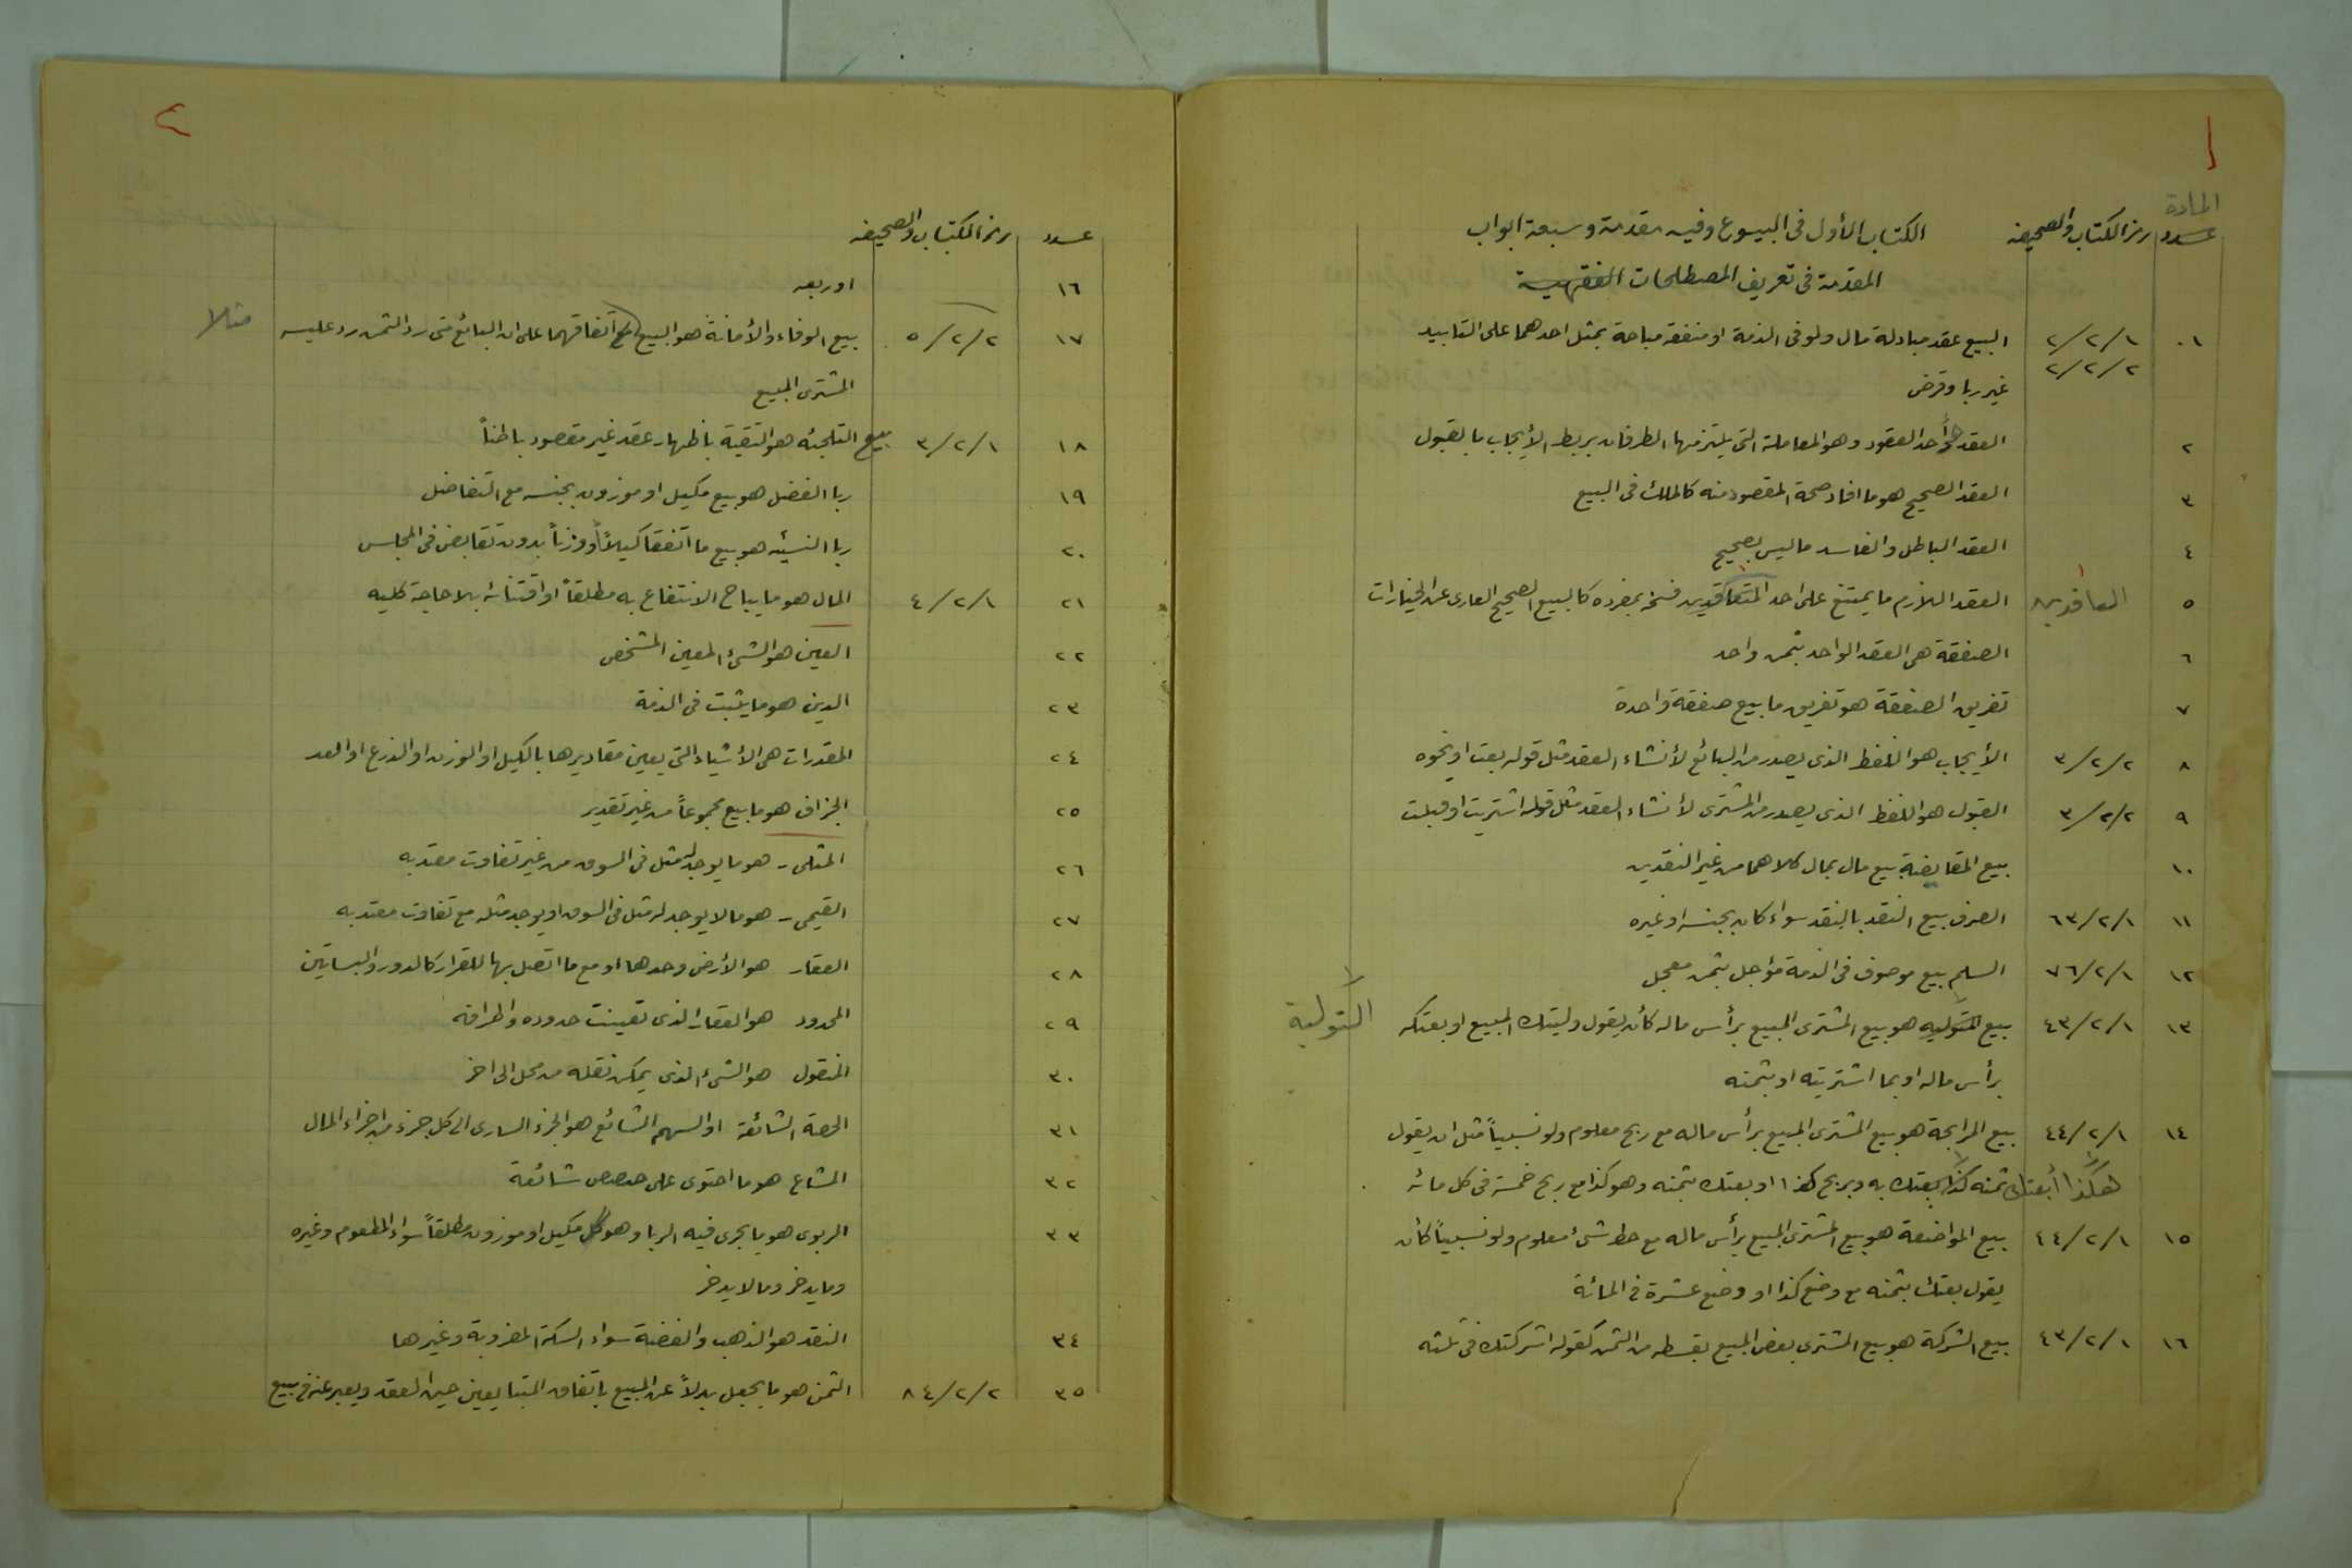 ١
المادة
عدد رمز الكتاب والصحيفه الكتاب الأول في البيوع وفيه مقدمة وسبعة ابواب
المقدمة في تعريف المصطلحات الفقهية
٠١ ٢/٢/١ البيع عقد مبادلة مال ولو في الذمة او منفعة مباحة بمثل احدهما على التابيد
٢/٢/٢ غير ربا وقرض
٢ العقد هو أحد العقود وهو المعاملة التي يلتزمها الطرفان بربط الأيجاب بالقبول
٣ العقد الصحيح هو ما افاد صحة المقصود منه كالملك في البيع
٤ العقد الباطل والفاسد ما ليس بصحيح
٥ العاقدين العقد اللازم ما يمتنع على احد المتعاقدين فسخه بمفرده كالبيع الصحيح العارى عن الخيارات
٦ الصفقة هي العقد الواحد بثمن واحد
٧ تفريق الصفقة هو تفريق ما بيع صفقة واحدة
٨ ٣/٢/٢ الأيجاب هو اللفظ الذى يصدر من البائع لأنشاء العقد مثل قوله بعت او نحوه
٩ ٣/٢/٢ القبول هو اللفظ الذى يصدر من المشترى لأنشاء العقد مثل قوله اشتريت او قبلت
١٠ بيع المقايضة بيع مال بمال كلاهما من غير النقدين
١١ ٦٣/٢/١ الصرف بيع النقد بالنقد سواء كان بجنسه او غيره
١٢ ٧٦/٢/١ السلم بيع موصوف في الذمة مؤاجل بثمن معجل
١٣ ٤٣/٢/١ بيع التوليه هو بيع المشترى المبيع برأس ماله كأن يقول وليتك المبيع او بعتكه التولية
برأس ماله او بما اشتريته او بثمنه
١٤ ٤٤/٢/١ بيع المرابحة هو بيع المشترى المبيع برأس ماله مع ربح معلوم ولو نسبياً مثل ان يقول
هكذا أبعتك ثمنه كذا بعتك به وبربح كذا او بعتك بثمنه وهو كذا مع ربح خمسة في كل مائه
١٥ ٤٤/٢/١ بيع المواضعة هو بيع المشترى المبيع برأس ماله مع حط شئ معلوم ولو نسبياً كأن
يقول بعتك بثمنه مع وضع كذا او وضع عشرة في المائة
١٦ ٤٣/٢/١ بيع الشركة هو بيع المشترى بعض المبيع بقسطه من الثمن كقوله اشركتك في ثلثه
٢
عدد رمز الكتاب والصحيفه
١٦ او ربعه
١٧ ٥/٢/٢ بيع الوفاء والأمانة هو البيع مع اتفاقهما على ان البائع متى رد الثمن رد عليه مثلا
المشترى المبيع
١٨ ٣/٢/١ بيع التلجئه هو التقية باظهار عقد غير مقصود باطناً
١٩ ربا الفضل هو بيع مكيل او موزون بجنسه مع التفاضل
٢٠ ربا النسئيه هو بيع ما اتفقا كيلاً أو وزناً بدون تقابض في المجلس
٢١ ٤/٢/١ المال هو ما يباح الانتفاع به مطلقاً او اقتنائه بلا حاجة كليه
٢٢ العين هو الشئ المعين المشخص
٢٣ الدين هو ما يثبت في الذمة
٢٤ المقدرات هى الأشياء التي يعين مقاديرها بالكيل او الوزن او الذرع او العد
٢٥ الجزاف هو ما بيع مجموعاً من غير تقدير
٢٦ المثلى - هو ما يوجد له مثل في السوق من غير تفاوت معتد به
٢٧ القيمى - هو ما لا يوجد له مثل في السوق او يوجد مثله مع تفاوت معتد به
٢٨ العقار هو الأرض وحدها او مع ما اتصل بها للقرار كالدور والبساتين
٢٩ المحدود هو العقار الذى تعينت حدوده واطرافه
٣٠ المنقول هو الشئ الذى يمكن نقله من محل الى اخر
٣١ الحصة الشائعة او السهم الشائع هو الجزء السارى الى كل جزء من اجزاء المال
٣٢ المشاع هو ما احتوى على حصص شائعة
٣٣ الربوى هو ما يجرى فيه الربا وهو كل مكيل او موزون مطلقاً سواء المطعوم وغيره
وما يدخر وما لا يدخر
٣٤ النقد هو الذهب والفضة سواء السكة المضروبة وغيرها
٣٥ ٨٤/٢/٢ الثمن هو ما يجعل بدلاً عن المبيع باتفاق المتبايعين حين العقد ويعبر عنه في بيع